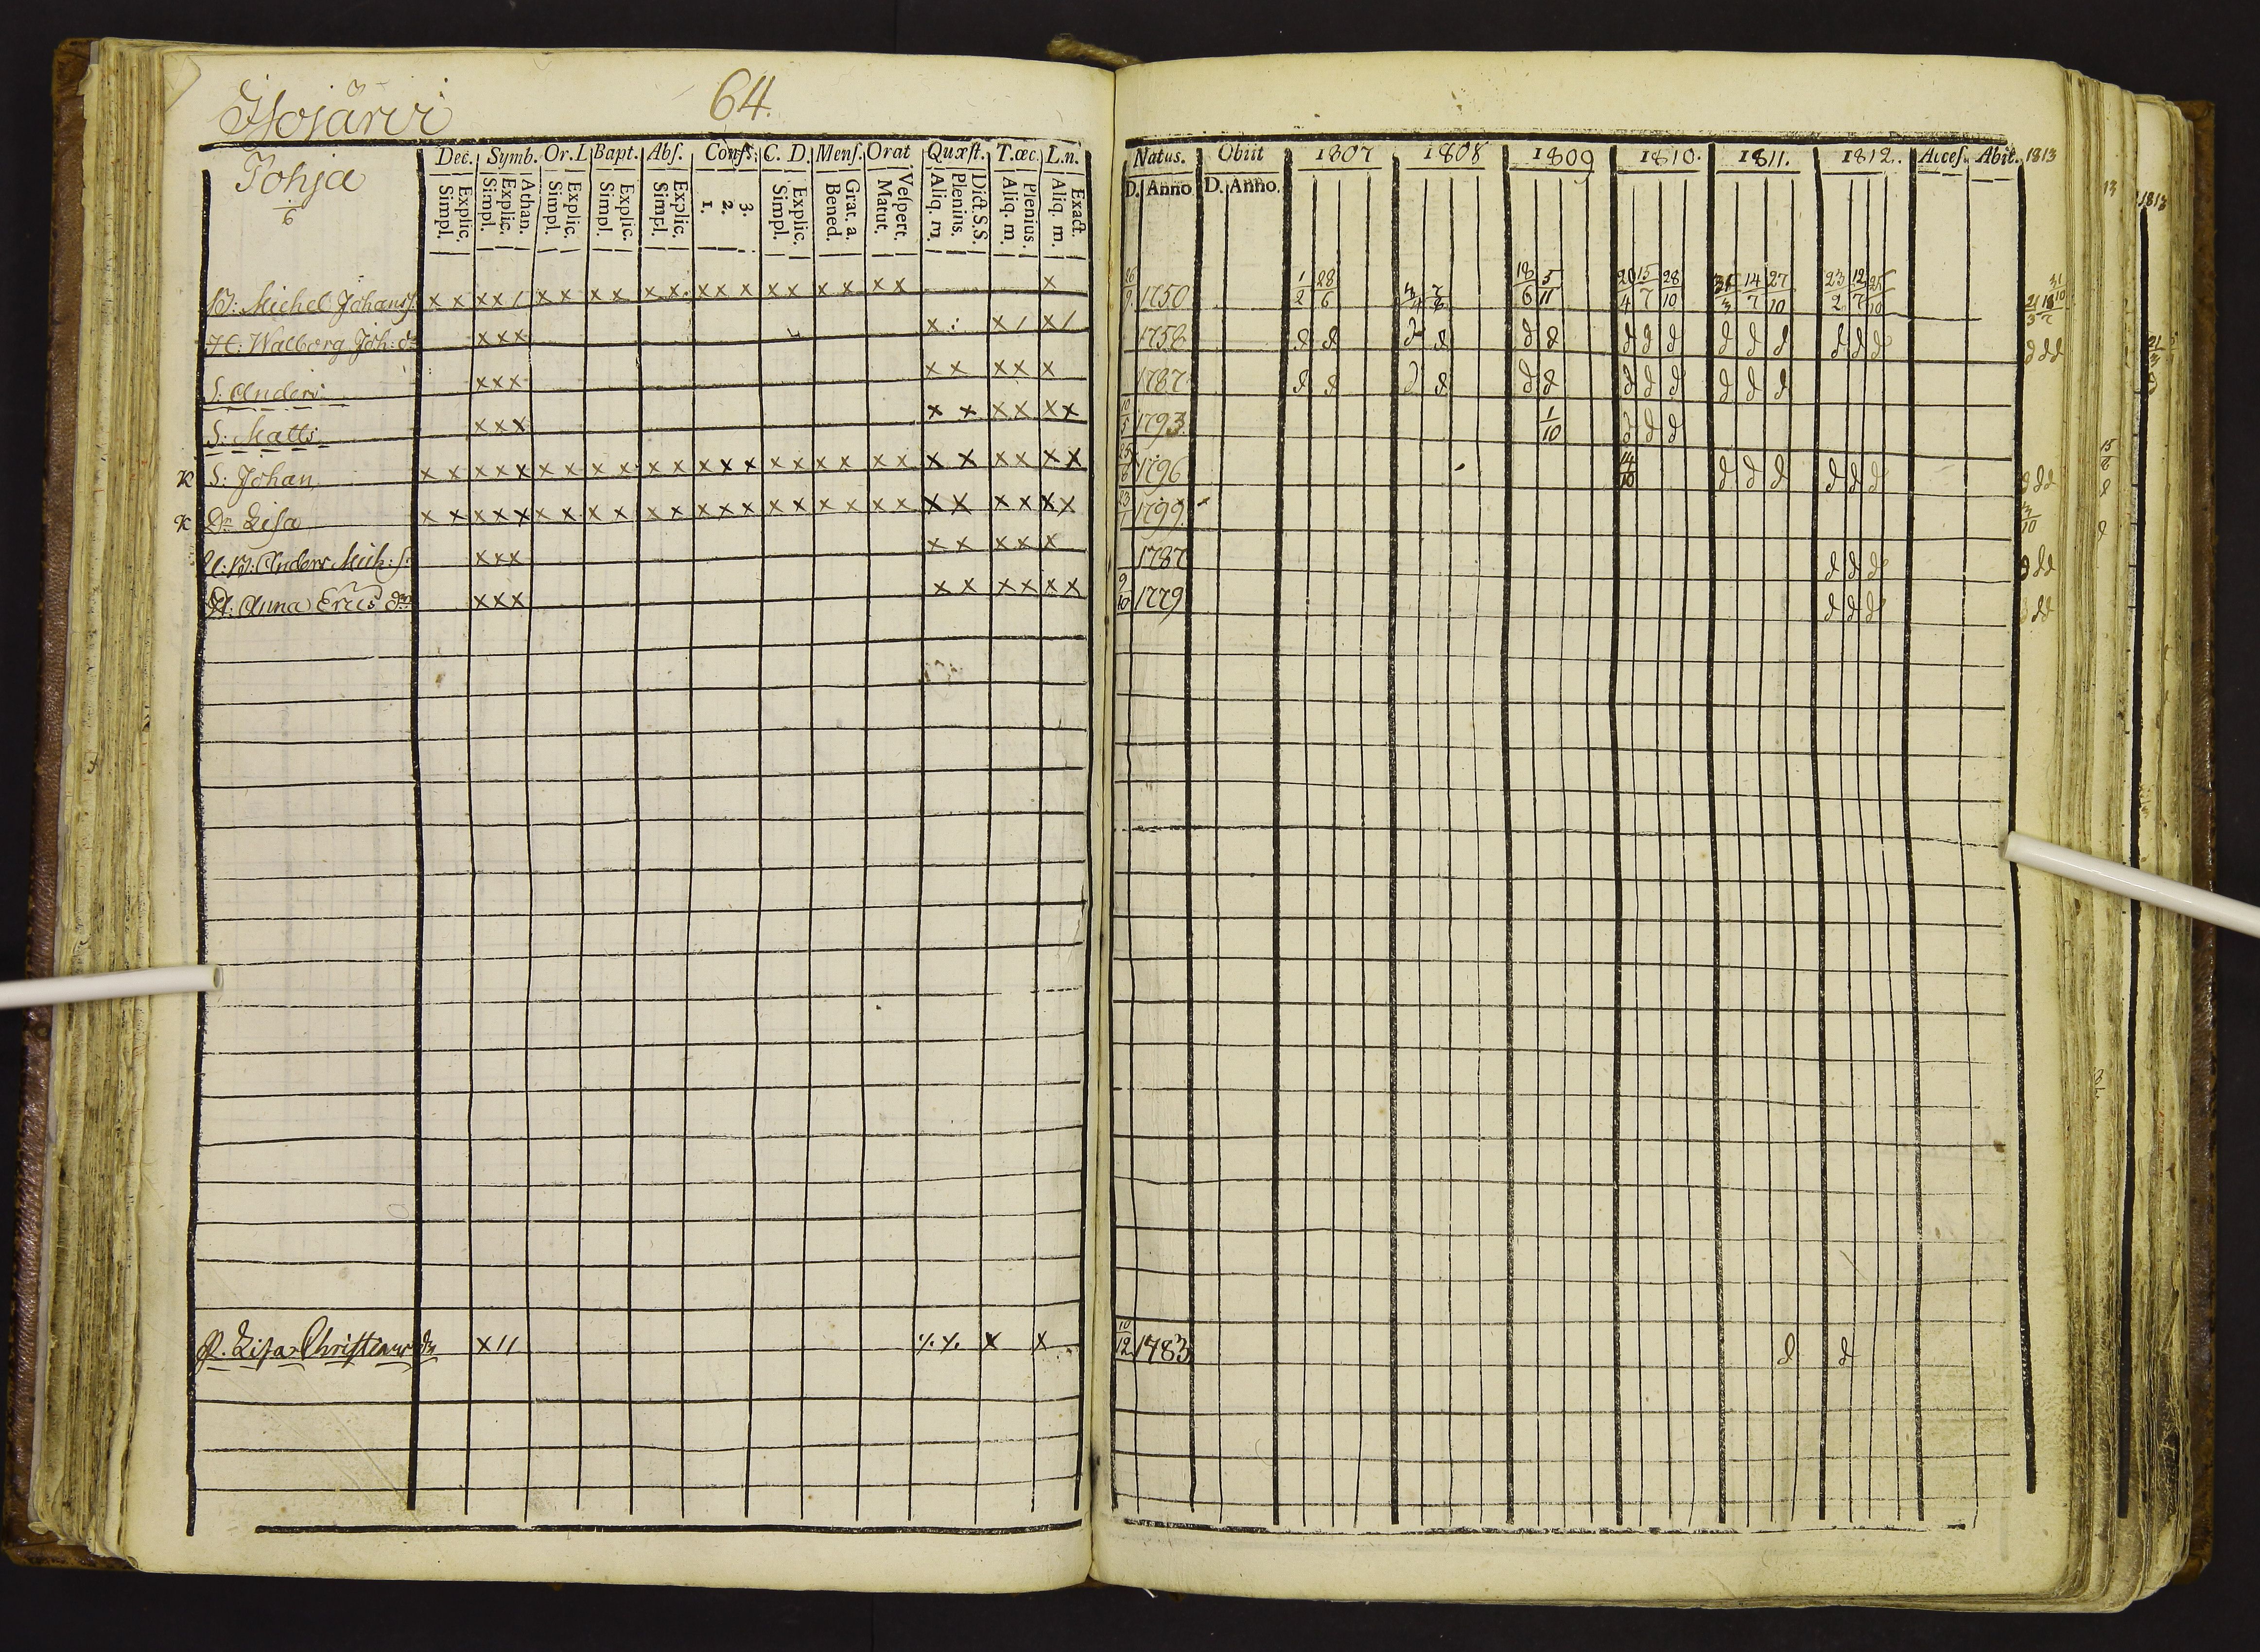 Isojärvi 64.
Dec. Symb. Or.L Bapt. Abs. Confs. C. D. Mens. Orat Quæst. T.œc. L.n.
Simpl. Explic. Simpl. Explic. Athan. Simpl. Explic. Simpl. Explic. Simpl. Explic. 1. 2. 3. Simpl. Explic. Bened. Grat. a. Matut. Vespert. Aliq. m. Plenius. Dict.S.S. Aliq. m. Plenius. Aliq. m. Exact.
Natus. Obiit 1807 1808 1809 1810. 1811. 1812. Acces. Abit. 1813
D. Anno D. Anno.
Tohja
6
B: Michel Johans x x x x / x x x x x x x x x x x x x x x x 26/9 1750 1/2 28/6 18/6 5/11 20/4 15/7 28/10 31/3 14/7 27/10 23/2 12/7 25/10
H: Walborg Joh: dr x x x x : x / x / 1758 d d d d d d d d d d d d d d d d d d
S: Anders x x x x x x x x 1787 d d d d d d d d d d d d
S: Matts x x x x x x x x x 10/5 1793 1/10 d d d
K S: Johan x x x x x x x x x x x x x x x x x x x x x x x x x x x 1796 14/10 d d d d d d d d d
K Dr Lisa x x x x x x x x x x x x x x x x x x x x x x x x x x 1799 3/10
Anders Mich: s x x x x x x x x 1787 d d d d d d
H: Anna Erics dr x x x x x x x x x 9/10 1779 d d d d d
P. Lisa Christians dr x / / x x 10/12 1783 d d